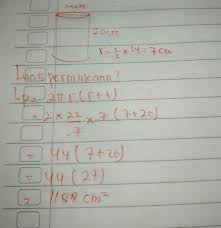 14cm
20cm
r = 1/2 x 14 = 7cm
Luas permukaan?
Lp = 2πr (r+t)
= 2 x 22/7 x 7 (7+20)
= 44 (7+20)
= 44 (27)
= 1188 cm²